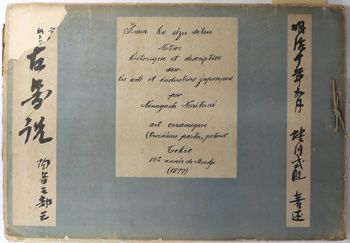 Kwan ko dzu setsu
Notice
historique et descriptive
sur
les arts et industries japonais
par
Ninagawa Noritané
art céramique
(troisième partie, poterie)
Tokio
10e année de Meidji
(1877)
明治十年
蜷川式胤 著述
古圖説
陶器之部三